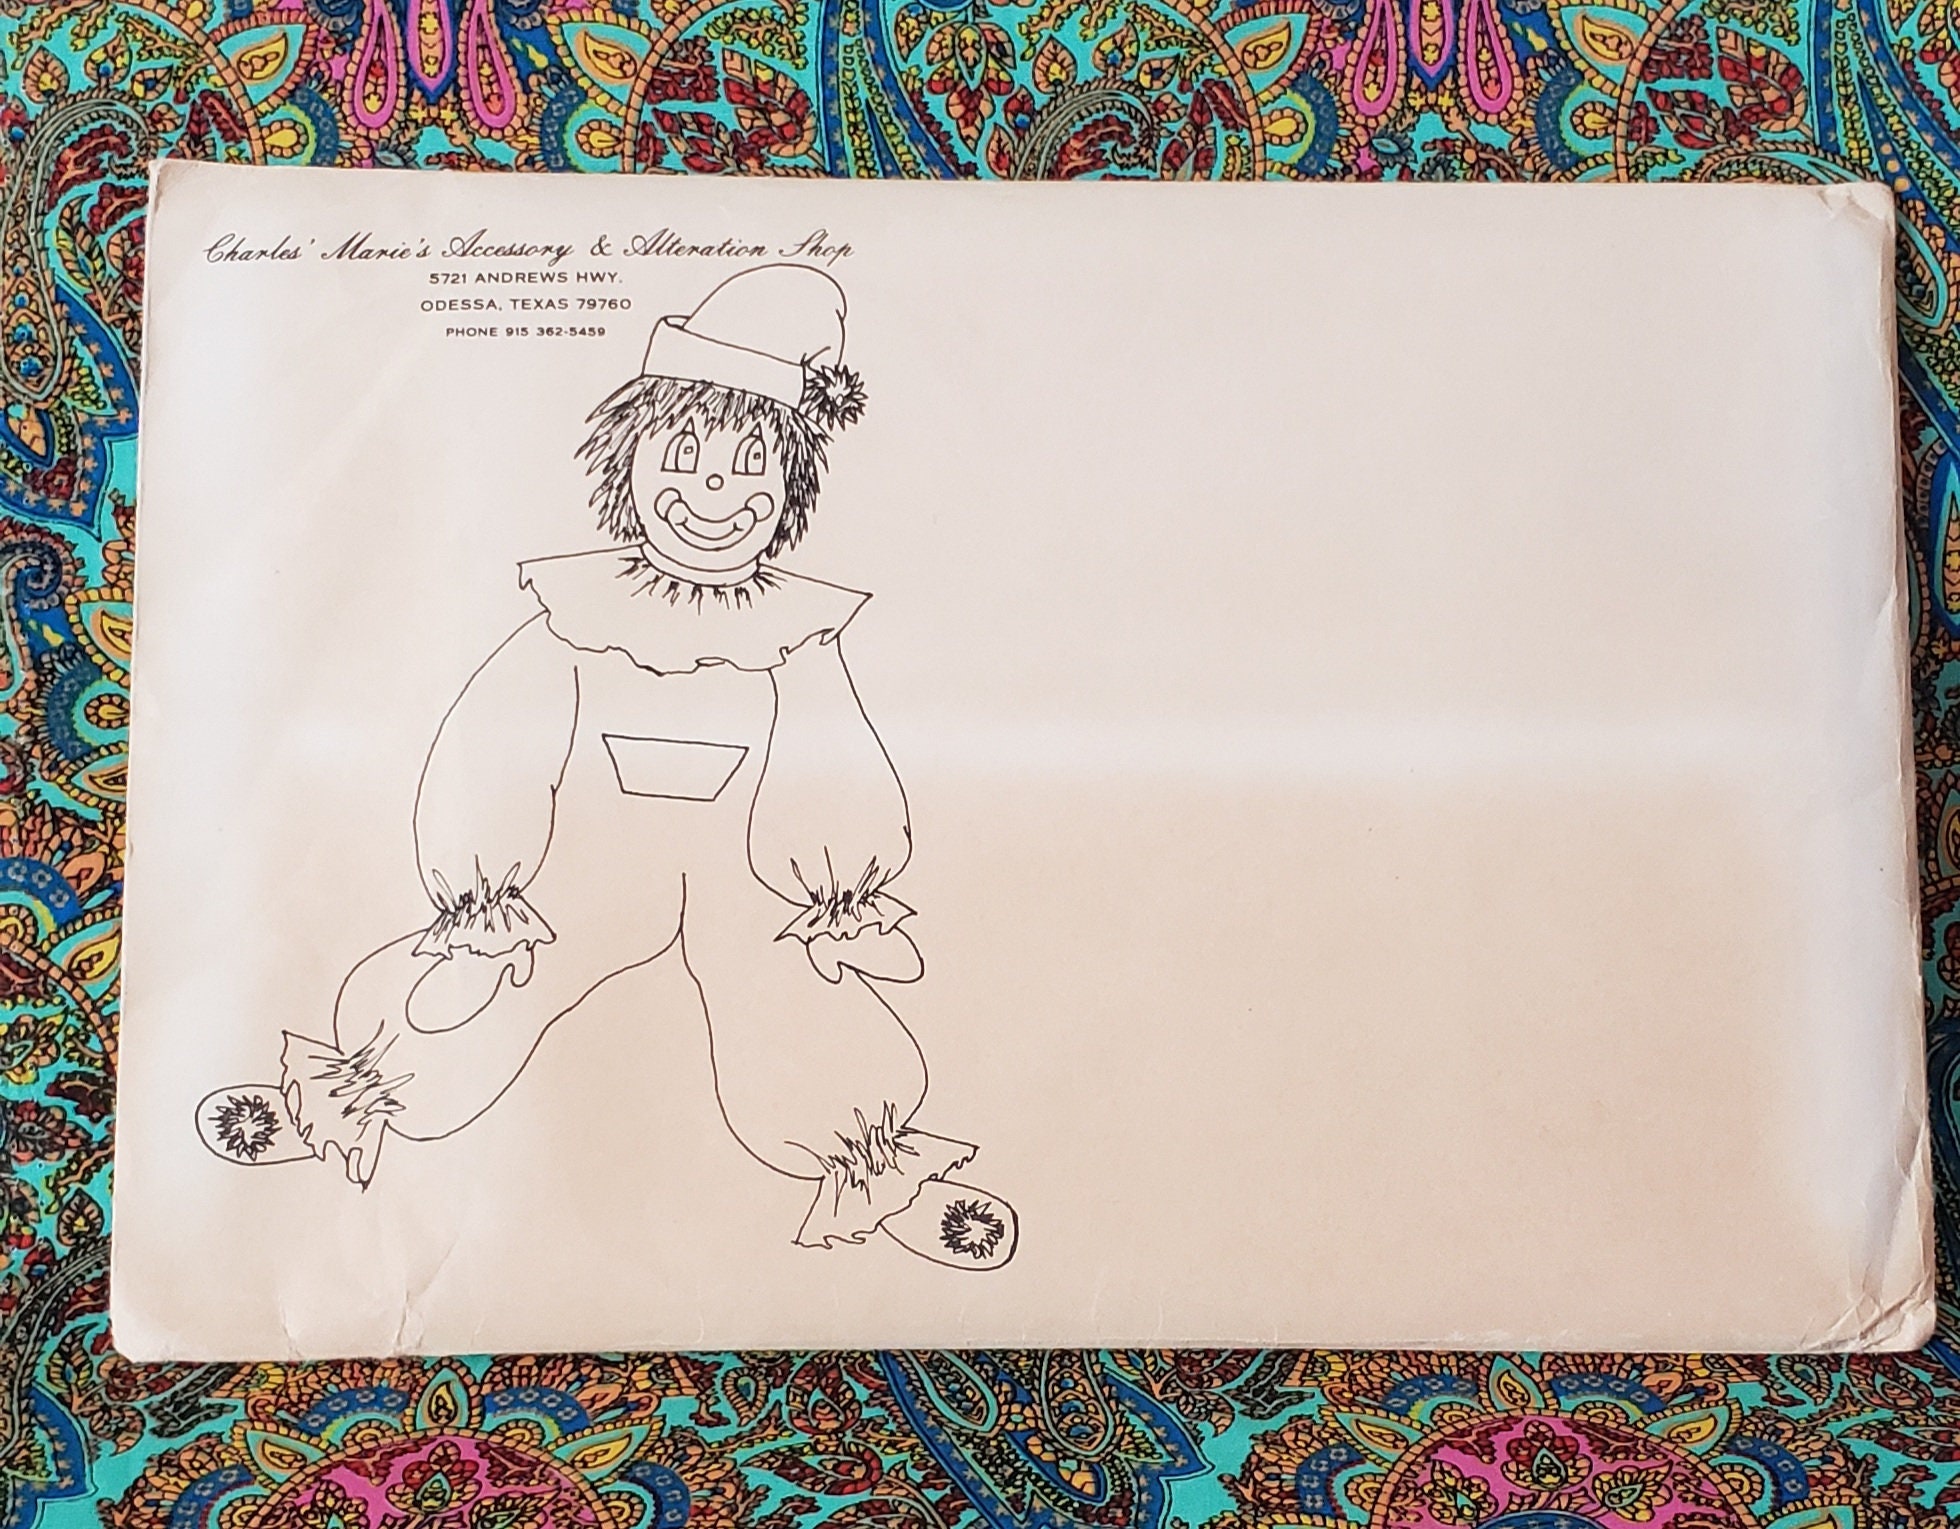 Charles' Marie's Accessory & Alteration Shop
5721 ANDREWS HWY.
ODESSA, TEXAS 79760
PHONE 915 362-5459